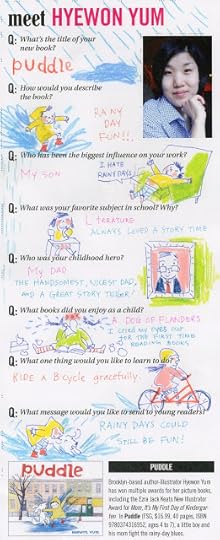 meet HYEWON YUM
Q: What's the title of your
new book?
puddle
Q: How would you describe
the book?
RAINY
DAY
FUN!!
Q: Who has been the biggest influence on your work?
MY SON
I HATE
RAINY DAYS
Q: What was your favorite subject in school? Why?
LITERATURE
ALWAYS LOVED A STORY TIME
Q: Who was your childhood hero?
MY DAD
THE HANDSOMEST, NICEST DAD,
AND A GREAT STORY TELLER!
Q: What books did you enjoy as a child?
A DOG OF FLANDERS
I CRIED MY EYES OUT
FOR THE FIRST TIME
READING BOOKS
Q: What one thing would you like to learn to do?
RIDE A BICYCLE gracefully.
Q: What message would you like to send to young readers?
RAINY DAYS COULD
STILL BE FUN!
puddle
HYEWON YUM
PUDDLE
Brooklyn-based author-illustrator Hyewon Yum
has won multiple awards for her picture books,
including the Ezra Jack Keats New Illustrator
Award for Mom, It's My First Day of Kindergar-
ten. In Puddle (FSG, $16.99, 40 pages, ISBN
9780374316952, ages 4 to 7), a little boy and
his mom fight the rainy-day blues.